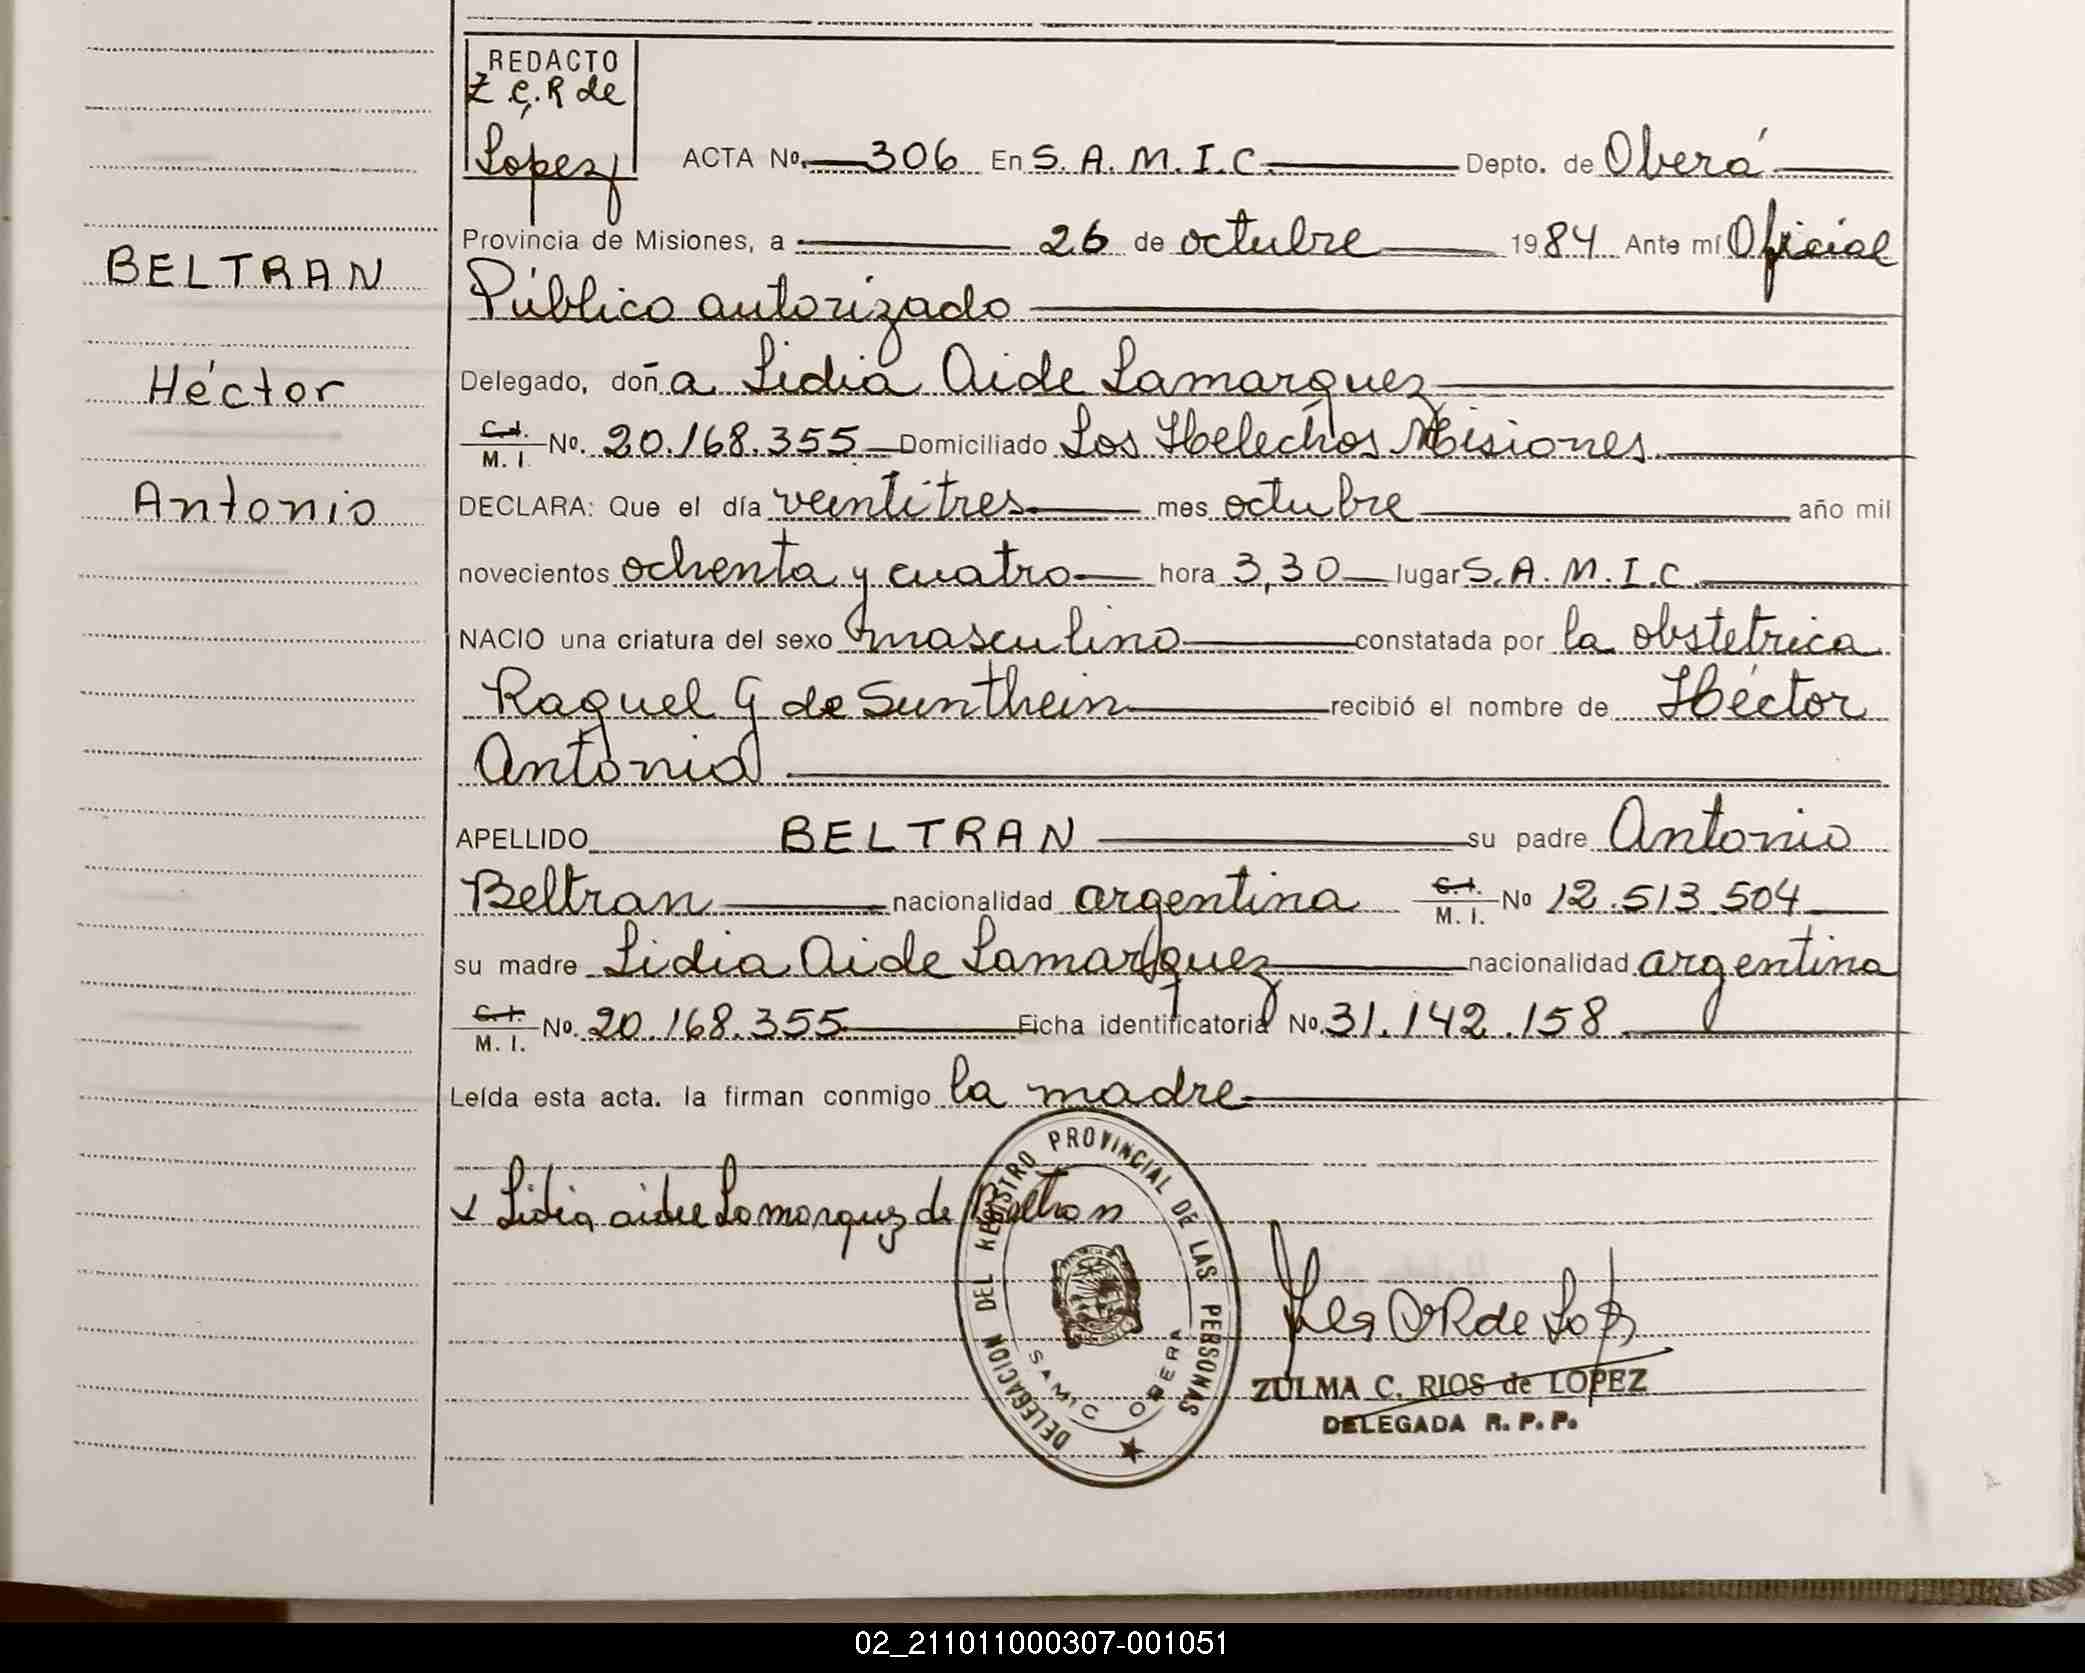 REDACTO
Z C. R de
Lopez
ACTA No. 306 En S. A. M. I. C. Depto. de Oberá
Provincia de Misiones, a 26 de octubre 1984 Ante mí Oficial
Público autorizado
Delegado, doña Lidia Aide Lamarquez
C.I. M. I. No. 20.168.355 Domiciliado Los Helechos Misiones
DECLARA: Que el día veintitres mes octubre año mil
novecientos ochenta y cuatro hora 3,30 lugar S. A. M. I. C.
NACIO una criatura del sexo masculino constatada por la obstetrica
Raquel G de Sunthein recibió el nombre de Héctor
Antonio
APELLIDO BELTRAN su padre Antonio
Beltran nacionalidad argentina C.I. M. I. No 12.513.504
su madre Lidia Aide Lamarquez nacionalidad argentina
C.I. M. I. No. 20.168.355 Ficha identificatoria No. 31.142.158
Leída esta acta. la firman conmigo la madre
Lidia aidee Lamarquez de Beltran
BELTRAN
Héctor
Antonio
DELEGACION DEL REGISTRO PROVINCIAL DE LAS PERSONAS
SAMIC OBERA
ZULMA C. RIOS de LOPEZ
DELEGADA R. P. P.
02_211011000307-001051